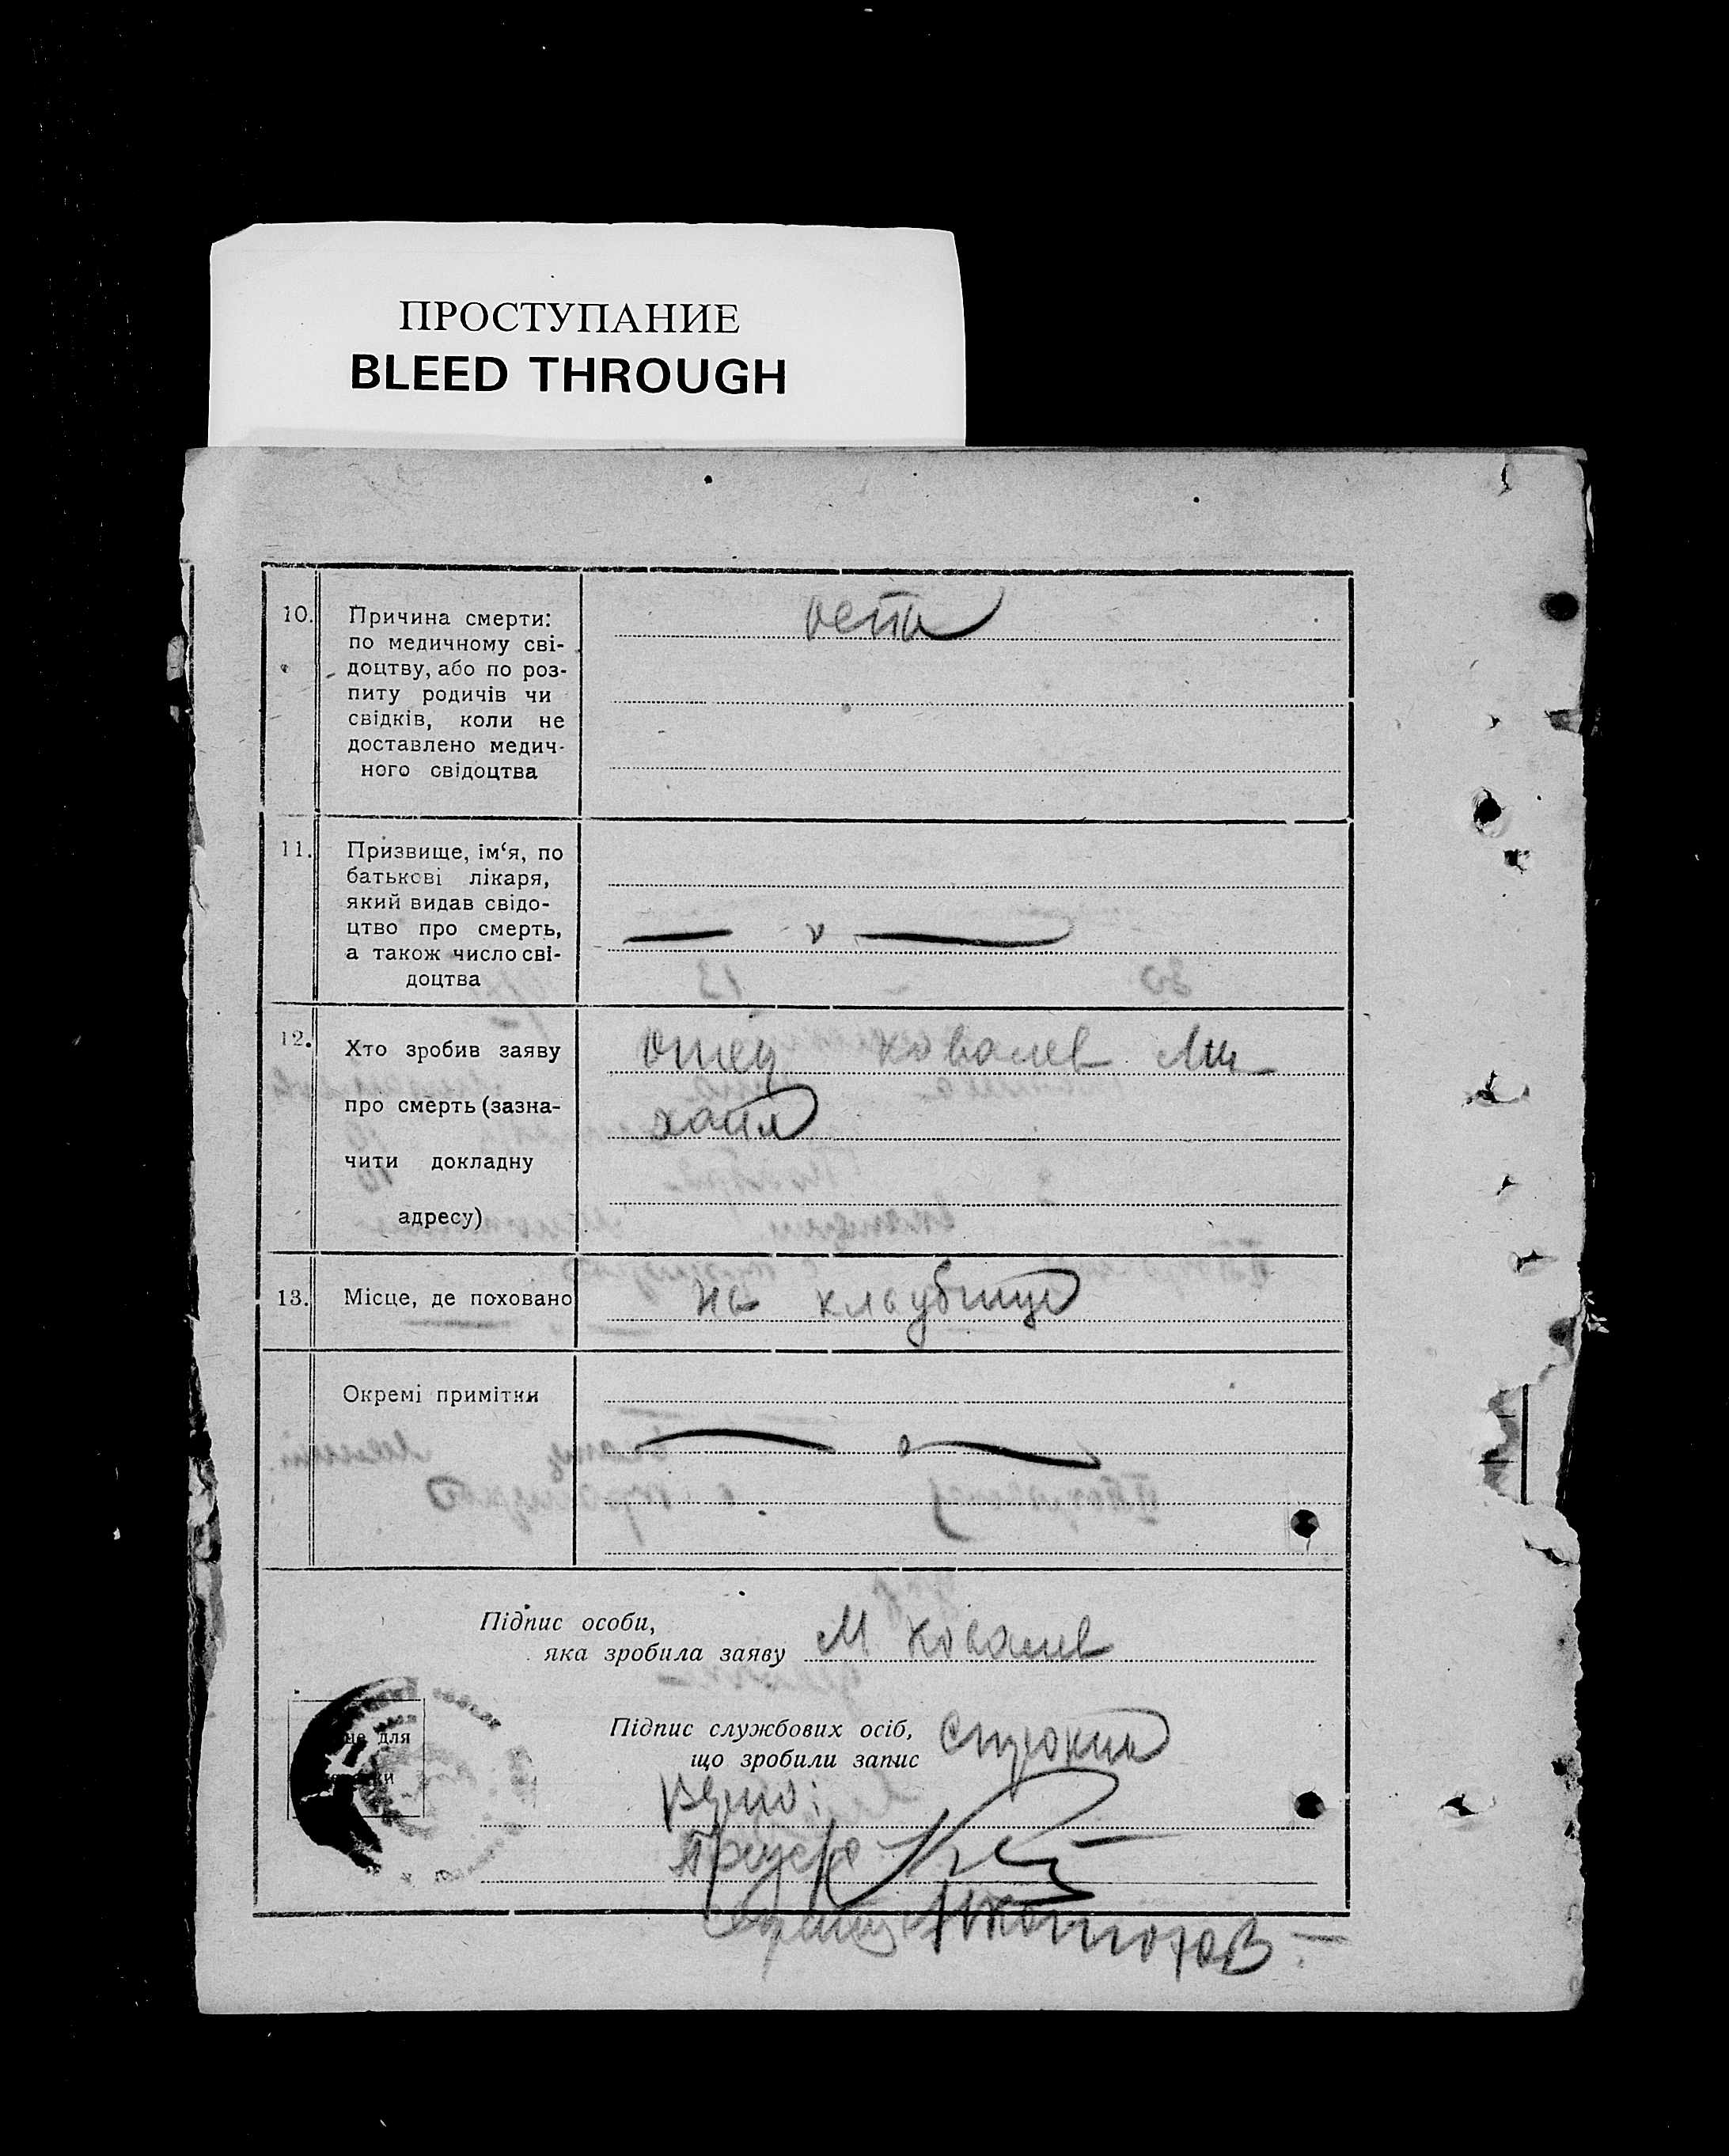 ПРОСТУПАНИЕ
BLEED THROUGH
10. Причина смерти:
по медичному сві-
доцтву, або по роз-
питу родичів чи
свідків, коли не
доставлено медич-
ного свідоцтва
оспа
11. Призвище, ім‘я, по
батькові лікаря,
який видав свідо-
цтво про смерть,
а також число сві-
доцтва
12. Хто зробив заяву
про смерть (зазна-
чити докладну
адресу)
отец ковалев Ми
хаил
13. Місце, де поховано
на кладбище
Окремі примітки
Підпис особи,
яка зробила заяву М Ковалев
Підпис службових осіб,
що зробили запис
для